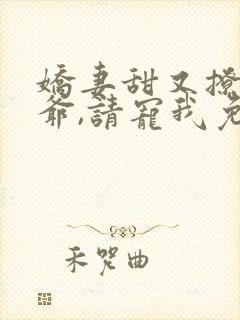 嬌妻甜又撩
爺,請寵我免
禾哭曲